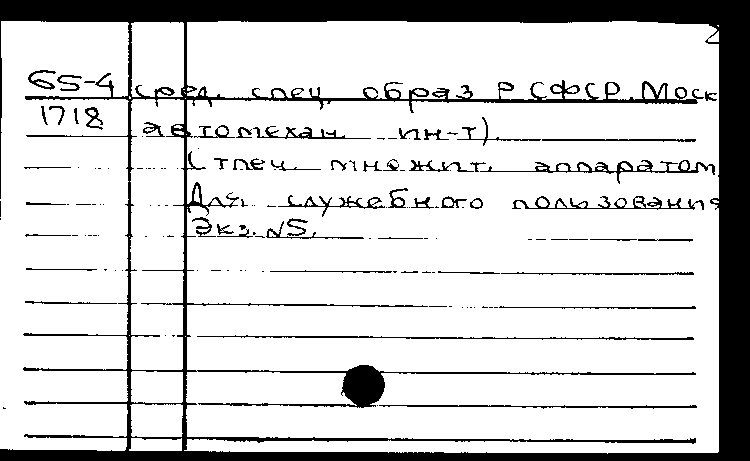 2
65-4 сред. спец. образ РСФСР. Моск
1718 автомехан. ин-т).
Отпеч. множит. аппаратом
Для служебного пользования
Экз. N5.